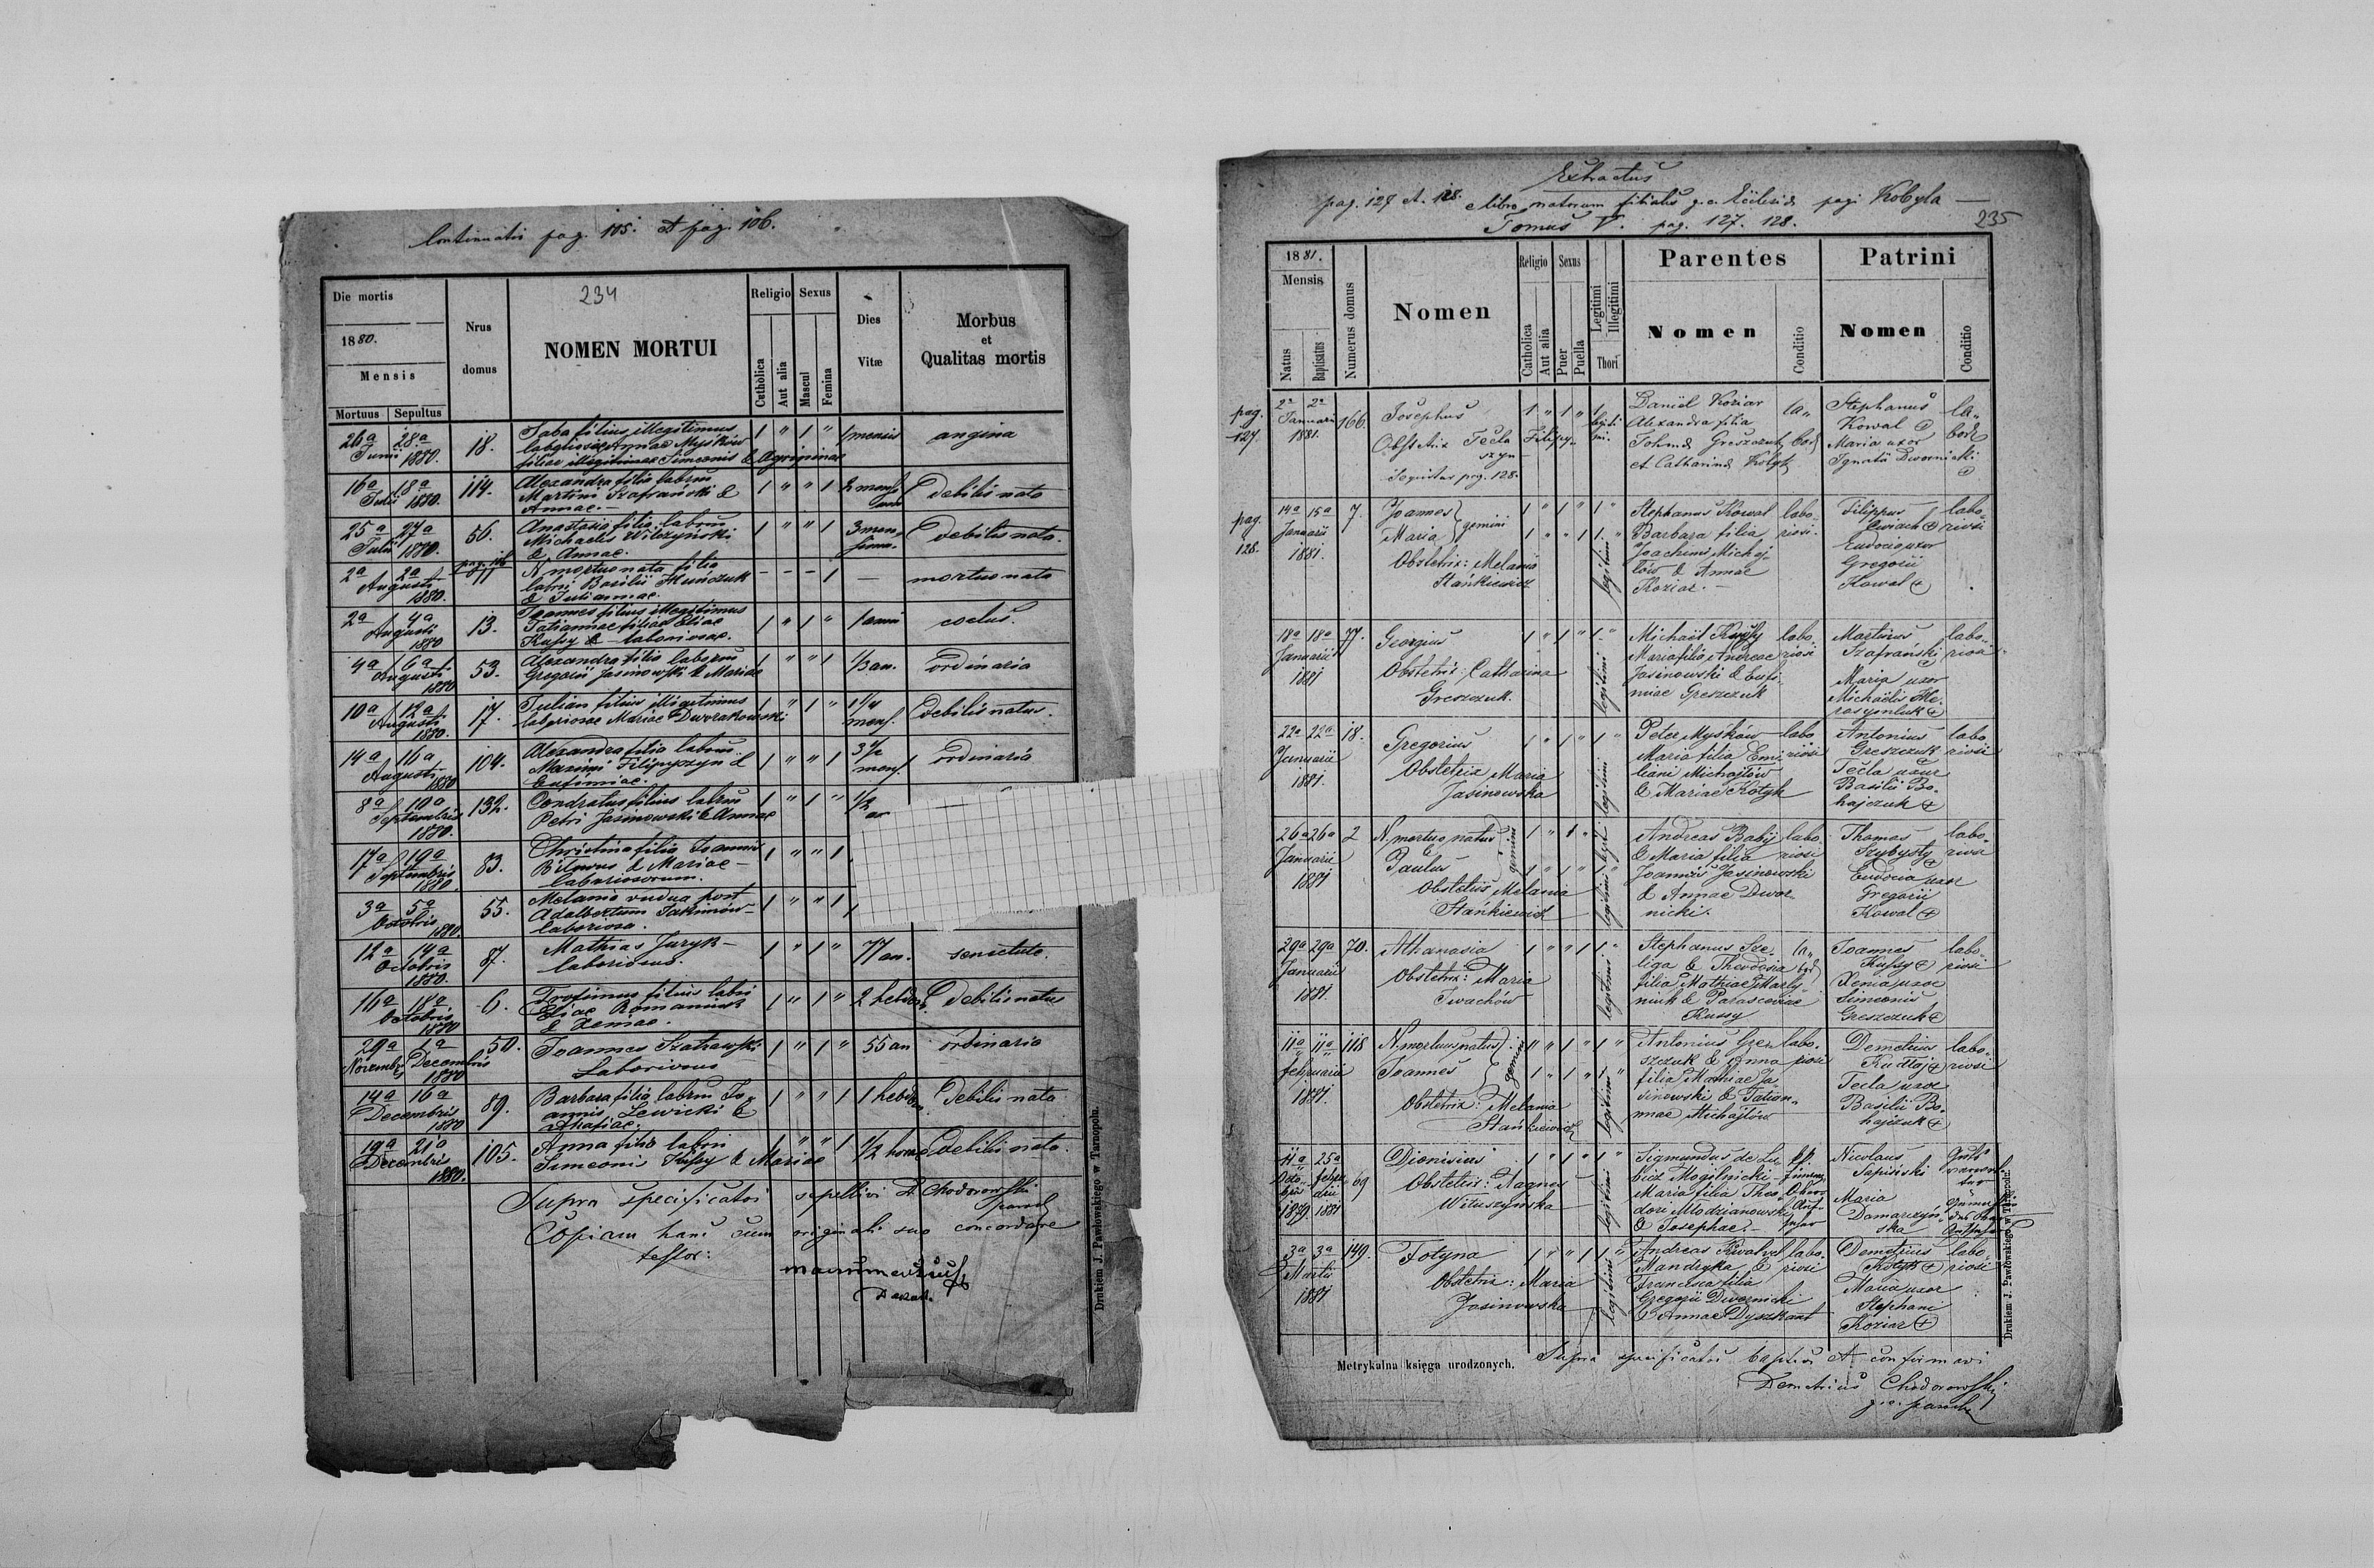 Continuatio pag. 105. et pag. 106.
234
Die mortis
1880.
Mensis
Mortuus Sepultus
Nrus domus
NOMEN MORTUI
Religio Sexus
Catholica Aut alia Mascul Femina
Dies Vitæ
Morbus et Qualitas mortis
26a 28a Junii 1880. 18. filius illegitimus
laboriosae Annae Myśków
filiae illegitimae Simeonis & Agripinae
1 " 1 " 1 mensis angina
16a 18a Julii 1880. 114. Alexandra filia labrum
Martini Szafrański &
Annae.—
1 " " 1 2 mens debilis nata
25a 27a Julii 1880. 56. Anastasia filia labrum
Michaelis Wilczyński
& Annae.
1 " " 1 3 men debilis nata.
pag. 106
2a 2a Augusti 1880. 11 N. mortuo nata filia
labri Basilii Hunczuk
& Julianae.
- - - 1 — mortuo nata
2a 4a Augusti 1880 13. Joannes filius illegitimus
Tatiannae filiae Eliae
Kussy & — laboriosae.
1 " 1 " 1 anni coctus.
4a 6a Augusti 1880 53. Alexandra filia laborum
Gregorii Jasinowski & Mariae
1 " " 1 1/3 an. ordinaria
10a 12a Augusti 1880. 17. Julian filius illegitimus
laboriosae Mariae Dworakowski
1 " 1 " 1 1/4 mens. debilis natus.
14a 16a Augusti 1880 104. Alexandra filia laborum
Maximi Filipyszyn &
Eufimiae.
1 " " 1 3 1/2 mens. ordinaria
8a 10a Septembris 1880. 132. Condratus filius labrum
Petri Jasinowski & Annae
1 " 1 " 1/2
17a 19a Septembris 1880. 83. Christina filia Joannis
& Mariae —
laboriosorum.
1 " " 1
3a 5a Octobris 1880. 55. Melania vidua post
Adalbertum Jakimów —
laboriosa.
1 " " 1
12a 14a Octobris 1880. 87. Mathias Juryk —
laboriosus.
1 " 1 " 77 an. senectute.
16a 18a Octobris 1880 6. Trofimus filius labri
Eliae Romaniuk
& Xeniae.
1 " 1 " 2 hebdom debilis natus
29a Novembris 1a Decembris 1880 50. Joannes Szatrawski
Laboriosus
1 " 1 " 55 an ordinaria
14a 16a Decembris 1880 89. Barbara filia labrum Jo-
annis Lewicki &
1 " " 1 1 hebdom debilis nata
19a 21a Decembris 1880. 105. Anna filia labori
Simeonis Kussy & Mariae
1 " " 1 1/2 horae debilis nata.
Supra specificatos sepelivi D. Chodorowski
paroch
Copiam hanc cum originali suo concordare
testor:
Drukiem J. Pawłowskiego w Tarnopolu.
Extractus
pag. 127 et 128. e libro natorum filialis g. c. Ecclesiae pagi Kobyla —
Tomus V. pag. 127. 128.
235
1881.
Mensis
Natus Baptisatus
Numerus domus
Nomen
Religio Sexus
Catholica Aut alia Puer Puella
Legitimi Illegitimi
Thori
Parentes
Nomen Conditio
Patrini
Nomen Conditio
pag. 127
2a 2a Januarii 1881. 166. Josephus
Obstetrix Tecla Filipy-
szyn
Sequitur pag. 128.
1 " 1 " 1 legiti mi.
Daniel Koziar
Alexandra filia
Greszczuk
et Catharinae Kotyk
Stephanus
Kowal
Maria uxor
Ignatii Dwornicki
pag. 128.
14a 15a Januarii 1881 7. Joannes
Maria gemini
Obstetrix: Melania
Stańkiewicz
legitimi
Stephanus Kowal laboriosi
Barbara filia
Joachimi Michaj-
łów & Annae
Koziar.—
Filippus laboriosi
Eudocia uxor
Gregorii
Kowal +
18a 18a Januarii 1881 77. Georgius
Obstetrix: Catharina
Greszczuk.
1 " 1 " 1 " legitimi
Michael Kussy laboriosi
Maria filia Andreae
Jasinowski & Eufi-
miae Greszczuk
Martinus laboriosi
Szafrański
Maria uxor
Michaelis He-
rasymluk +
22a 22a Januarii 1881. 18. Gregorius
Obstetrix Maria
Jasinowska
1 " 1 " 1 " legitimi
Peter Myśków laboriosi
Maria filia Emi-
liani Michajłów
& Mariae Kotyk
Antonius laboriosi
Greszczuk
Tecla uxor
Basilii Bo-
hajczuk +
26a 26a Januarii 1881 2 N. mortuo natus
&
Paulus gemini
Obstetrix Melania
Stańkiewicz
legitimi
Andreas Babij laboriosi
& Maria filia
Joannis Jasinowski
& Annae Dwor-
nicki.
Thomas laboriosi
Szybysty
Eudocia uxor
Gregorii
Kowal +
29a 29a Januarii 1881. 70. Athanasia
Obstetrix: Maria
Iwachów
1 " " 1 1 " legitimi
Stephanus Sze-
liga & Theodosia
filia Mathiae Marty-
niuk & Parasceviae
Kussy
Joannes laboriosi
Kussy +
Xenia uxor
Simeonis
Greszczuk +
11a 11a Februarii 1881. 118 N. mortuus natus
Joannes gemini
Obstetrix: Melania
Stańkiewicz
legitimi
Antonius Gre- laboriosi
szczuk & Anna
filia Mathiae Ja-
sinowski & Tatian-
nae Michajłów
Demetrius laboriosi
Kudłaj +
Tecla uxor
Basilii Bo-
hajczuk +
11a Octobris 1879. 25a febru 1881 69 Dionisius
Obstetrix: Magnes
Wituszyńska
1 " 1 " 1 " legitimi
Sigmundus de Lu-
bicz Mogilnicki
Maria filia Theo-
dori Młodzianowski
& Josephae.—
Nicolaus
Sapiński
Maria
Damarzyń-
ska
3a 3a Martii 1881 149. Fotyna
Obstetrix: Maria
Jasinowska
1 " " 1 1 " legitimi
Andreas laboriosi
Mandryka &
Francisca filia
Gregorii Dwornicki
& Annae Dyszkant
Demetrius laboriosi
Kotyk +
Maria uxor
Stephani
Koziar +
Metrykalna księga urodzonych. Supra specificatos baptisavi et confirmavi
Demetrius Chodorowski
g. c. parochus
Drukiem J. Pawłowskiego w Tarnopolu.